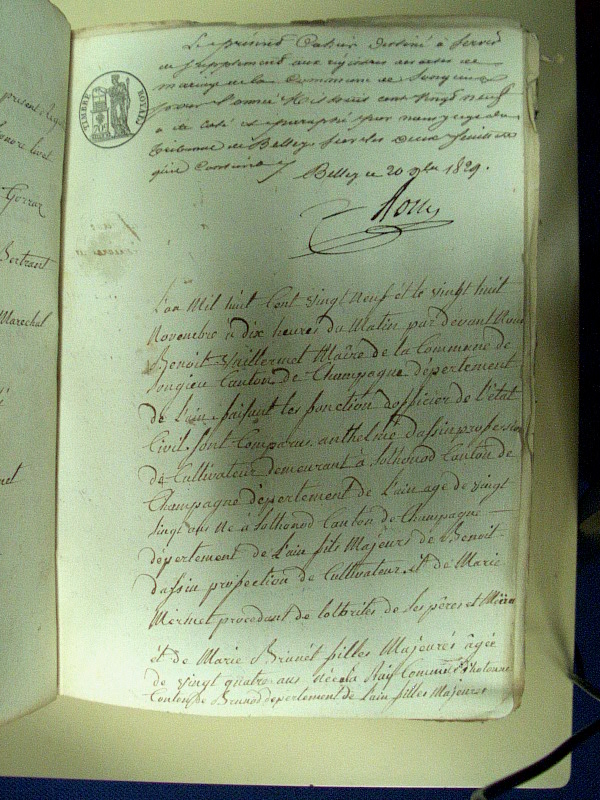 présent Regi
Gorraz
Bertrand
Marechal
TIMBRE ROYAL
Le présent Cahier destiné à servir
de Supplément aux registres des actes de
mariage de la Commune de Songieu
pour l'année Mil huit cent vingt neuf
a été coté et paraphé par nous juge du
tribunal de Belley sur les deux feuillets
qu'il Contient
Belley le 20 9bre 1829.
L'an Mil huit Cent vingt Neuf et le vingt huit
Novembre à dix heures du Matin par devant Nous
Benoit Vuillermet Maire de la Commune de
Songieu Canton de Champagne département
de L'ain faisant les fonction d'officier de L'état
Civil, sont Comparus anthelme Dassin profession
de Cultivateur demeurant à Solhonod Canton de
Champagne département de L'ain age de vingt
vingt ans Né à Solhonod Canton de Champagne
département de L'ain fils Majeurs de Benoit
dassin profection de Cultivateur et de Marie
Mermet procedant de lotorites de ses pères et Mère
et de Marie Brunet filles Majeures âgée
de vingt quatre ans Commune d'hotonne
Canton de Brenod département de L'ain filles Majeures